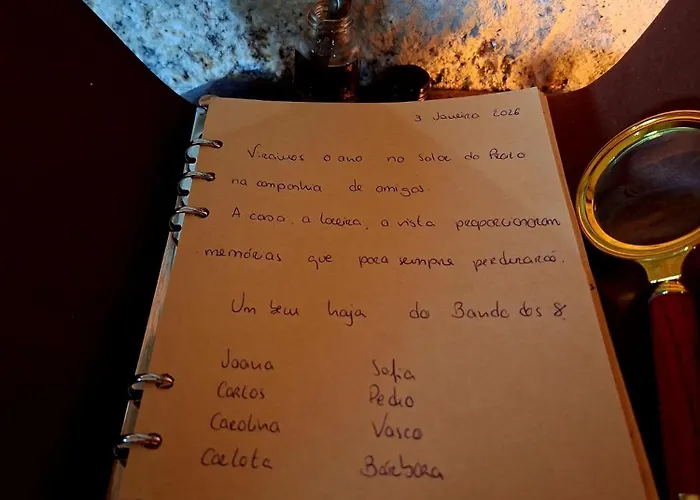 3 Janeiro 2026
Virámos o ano no Solar do Prato
na companhia de amigos.
A casa, a lareira, a vista proporcionaram
memórias que para sempre perdurarão.
Um bem haja do Bando dos 8.
Joana Sofia
Carlos Pedro
Carolina Vasco
Carlota Bárbara